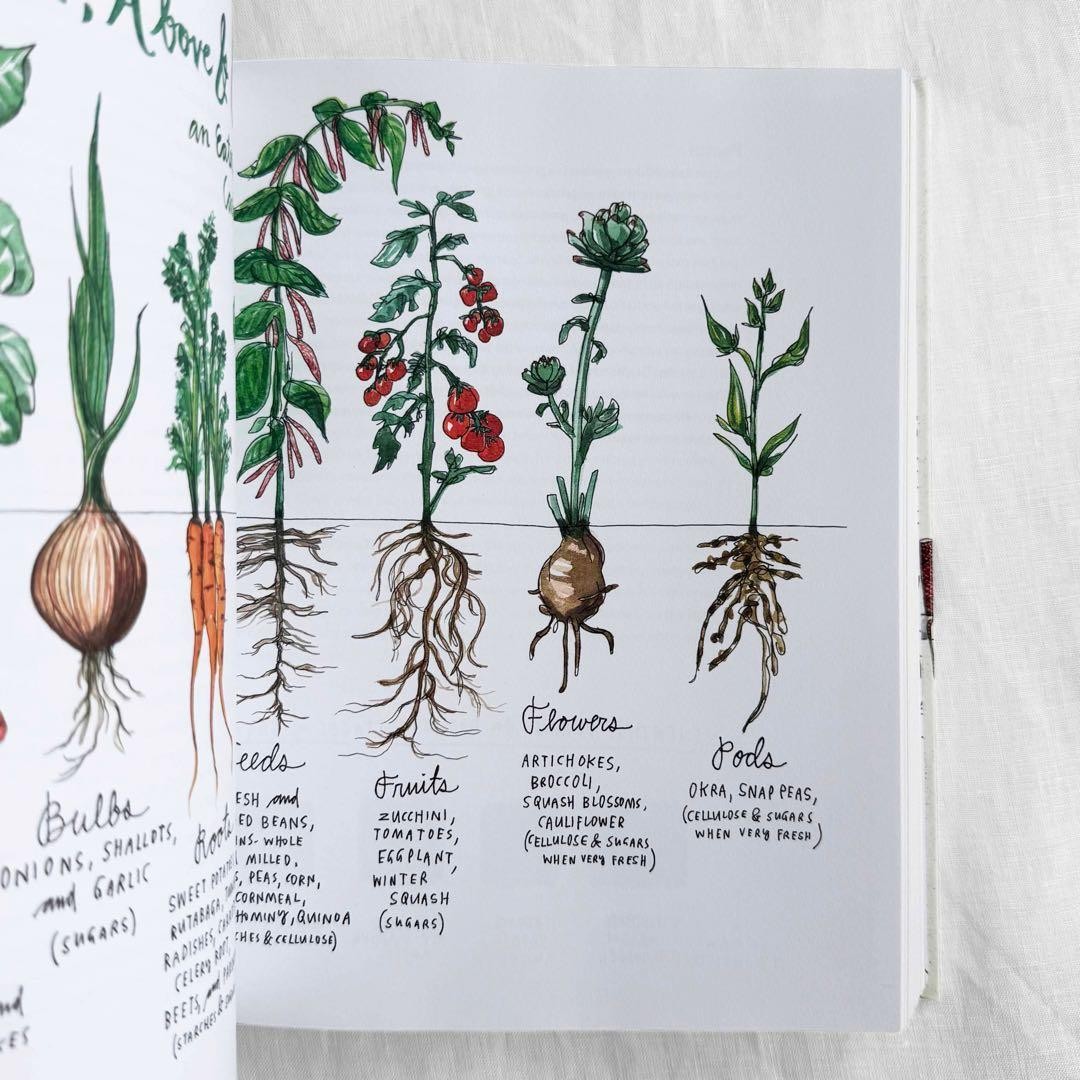 Above &
an Eat
Bulbs
ONIONS, SHALLOTS,
and GARLIC
(SUGARS)
Roots
SWEET POTATOES
RUTABAGA,
RADISHES,
CELERY ROOT,
BEETS, and
(STARCHES &
eeds
ESH and
ED BEANS,
INS- WHOLE
MILLED,
S, PEAS, CORN,
CORNMEAL,
HOMINY, QUINOA
CHES & CELLULOSE)
Fruits
ZUCCHINI,
TOMATOES,
EGGPLANT,
WINTER
SQUASH
(SUGARS)
Flowers
ARTICHOKES,
BROCCOLI,
SQUASH BLOSSOMS,
CAULIFLOWER
(CELLULOSE & SUGARS
WHEN VERY FRESH)
Pods
OKRA, SNAP PEAS,
(CELLULOSE & SUGARS
WHEN VERY FRESH)